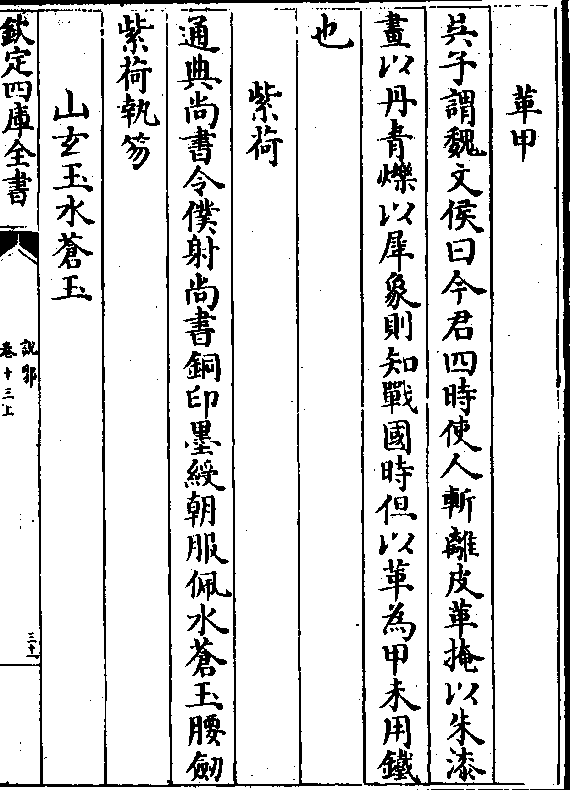 革甲
吳子謂魏文侯曰今君四時使人斬離皮革掩以朱漆
畫以丹青爍以犀象則知戰國時但以革為甲未用鐵
也
紫荷
通典尚書令僕射尚書銅印墨綬朝服佩水蒼玉腰劒
紫荷執笏
山玄玉水蒼玉
欽定四庫全書
說郛
卷十三上
三十一